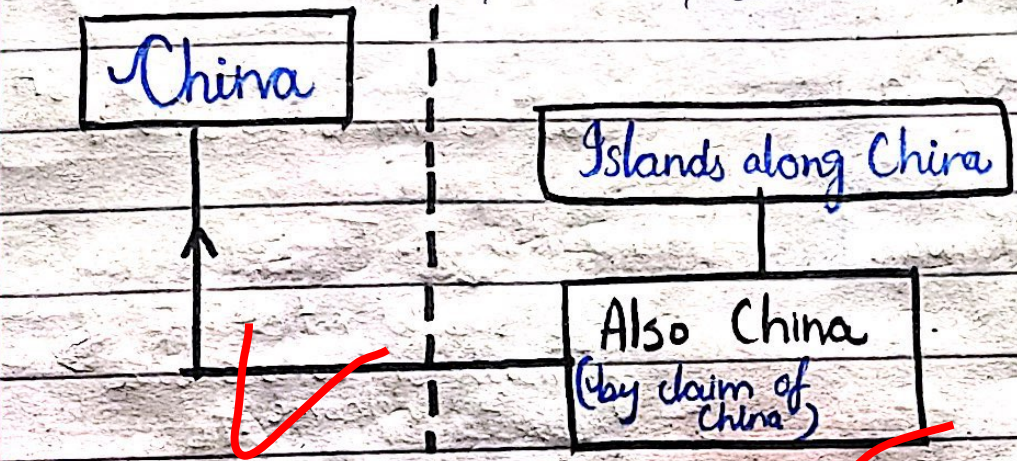 China
Islands along China
Also China
(by claim of
China)